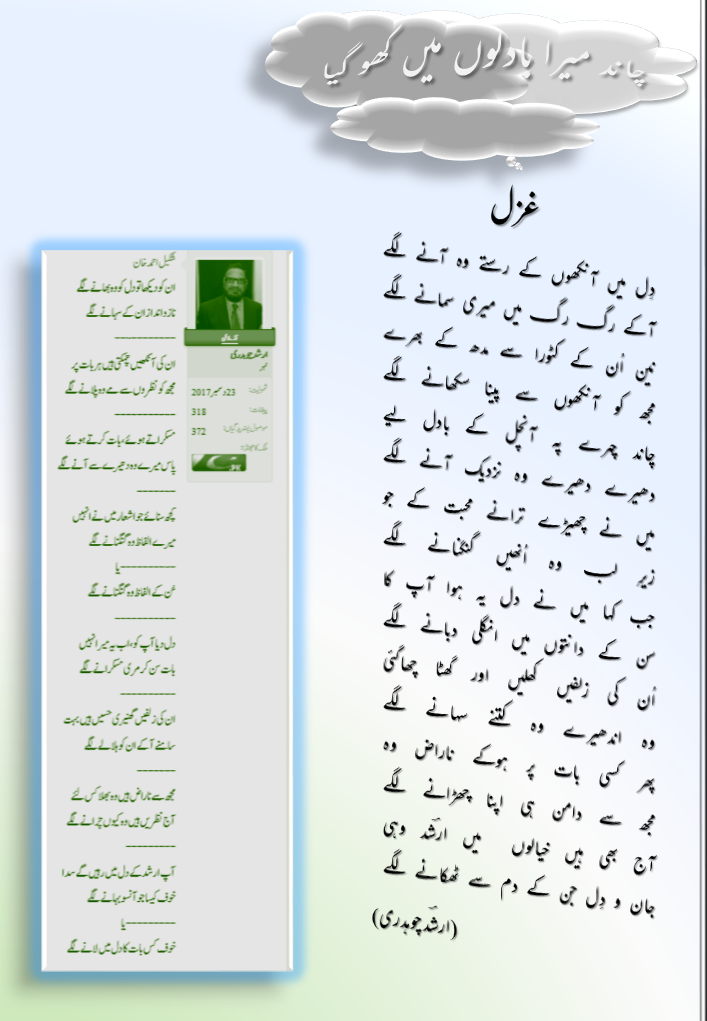 چاند میرا بادلوں میں کھو گیا
غزل
دِل میں آنکھوں کے رستے وہ آنے لگے
آکے رگ رگ میں میری سمانے لگے
نین اُن کے کٹورا سے مدھ کے بھرے
مجھ کو آنکھوں سے پینا سکھانے لگے
چاند چہرے پہ آنچل کے بادل لیے
دھیرے دھیرے وہ نزدیک آنے لگے
میں نے چھیڑے ترانے محبت کے جو
زیرِ لب وہ اُنھیں گنگنانے لگے
جب کہا میں نے دل یہ ہوا آپ کا
سن کے دانتوں میں انگلی دبانے لگے
اُن کی زلفیں کھلیں اور گھٹا چھاگئی
وہ اندھیرے وہ کتنے سہانے لگے
پھر کسی بات پر ہوکے ناراض وہ
مجھ سے دامن ہی اپنا چھڑانے لگے
آج بھی ہیں خیالوں میں ارشدؔ وہی
جان و دِل جن کے دم سے ٹھکانے لگے
(ارشدؔ چوہدری)
شکیل احمد خان
ان کو دیکھا تو دل کو وہ بھانے لگے
ناز و انداز ان کے سہانے لگے
-----------
ان کی آنکھیں چھلکتی ہیں ہر بات پر
مجھ کو نظروں سے مے وہ پلانے لگے
-----------
مسکراتے ہوئے، بات کرتے ہوئے
پاس میرے وہ دھیرے سے آنے لگے
-------
کچھ سنائے جو اشعار میں نے انہیں
میرے الفاظ وہ گنگنانے لگے
----------یا
سُن کے الفاظ وہ گنگنانے لگے
-----------
دل دیا آپ کو، اب یہ میرا نہیں
بات سن کر مری مسکرانے لگے
----------
ان کی زلفیں گھنیری حسیں ہیں بہت
سامنے آ کے ان کو ہلانے لگے
-------
مجھ سے ناراض ہیں وہ بھلا کس لئے
آج نظریں ہیں وہ کیوں چرانے لگے
---------
آپ ارشد کے دل میں رہیں گے سدا
خوف کیسا جو آنسو بہانے لگے
---------یا
خوف کس بات کا دل میں لانے لگے
ارشد چوہدری
23 دسمبر 2017
318
372